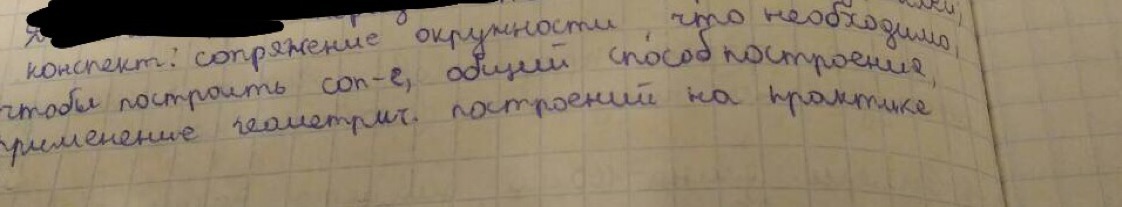 конспект: сопряжение окружности, что необходимо,
чтобы построить соп-е, общий способ построения,
применение геометрич. построений на практике